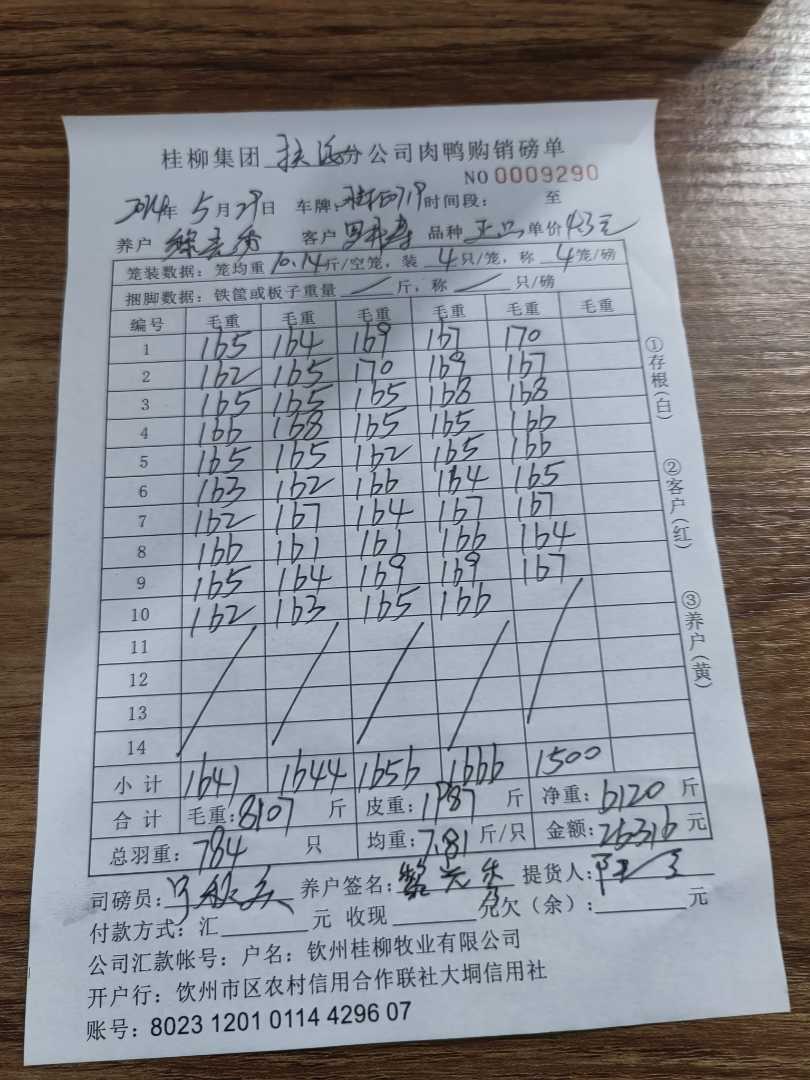 桂柳集团 分公司肉鸭购销磅单
NO 0009290
2024年 5月29日 车牌: 时间段: 至
养户 客户 品种 正品 单价 4.3元
笼装数据:笼均重10.14斤/空笼,装 4 只/笼,称 4 笼/磅
捆脚数据:铁筐或板子重量 / 斤,称 / 只/磅
编号 毛重 毛重 毛重 毛重 毛重 毛重
1 165 164 169 167 170
2 162 165 170 169 167
3 165 165 165 168 168
4 166 168 165 165 166
5 165 165 162 165 166
6 163 162 166 164 165
7 162 167 164 167 167
8 166 161 161 166 164
9 165 164 169 169 167
10 162 163 165 166
11
12
13
14
小计 1641 1644 1656 1666 1500
合计 毛重:8107 斤 皮重:1987 斤 净重:6120 斤
总羽重:784 只 均重:7.81 斤/只 金额:26316 元
司磅员: 养户签名: 提货人:
付款方式:汇 元 收现 元欠(余): 元
公司汇款帐号:户名:钦州桂柳牧业有限公司
开户行:钦州市区农村信用合作联社大垌信用社
账号:8023 1201 0114 4296 07
①存根(白)
②客户(红)
③养户(黄)